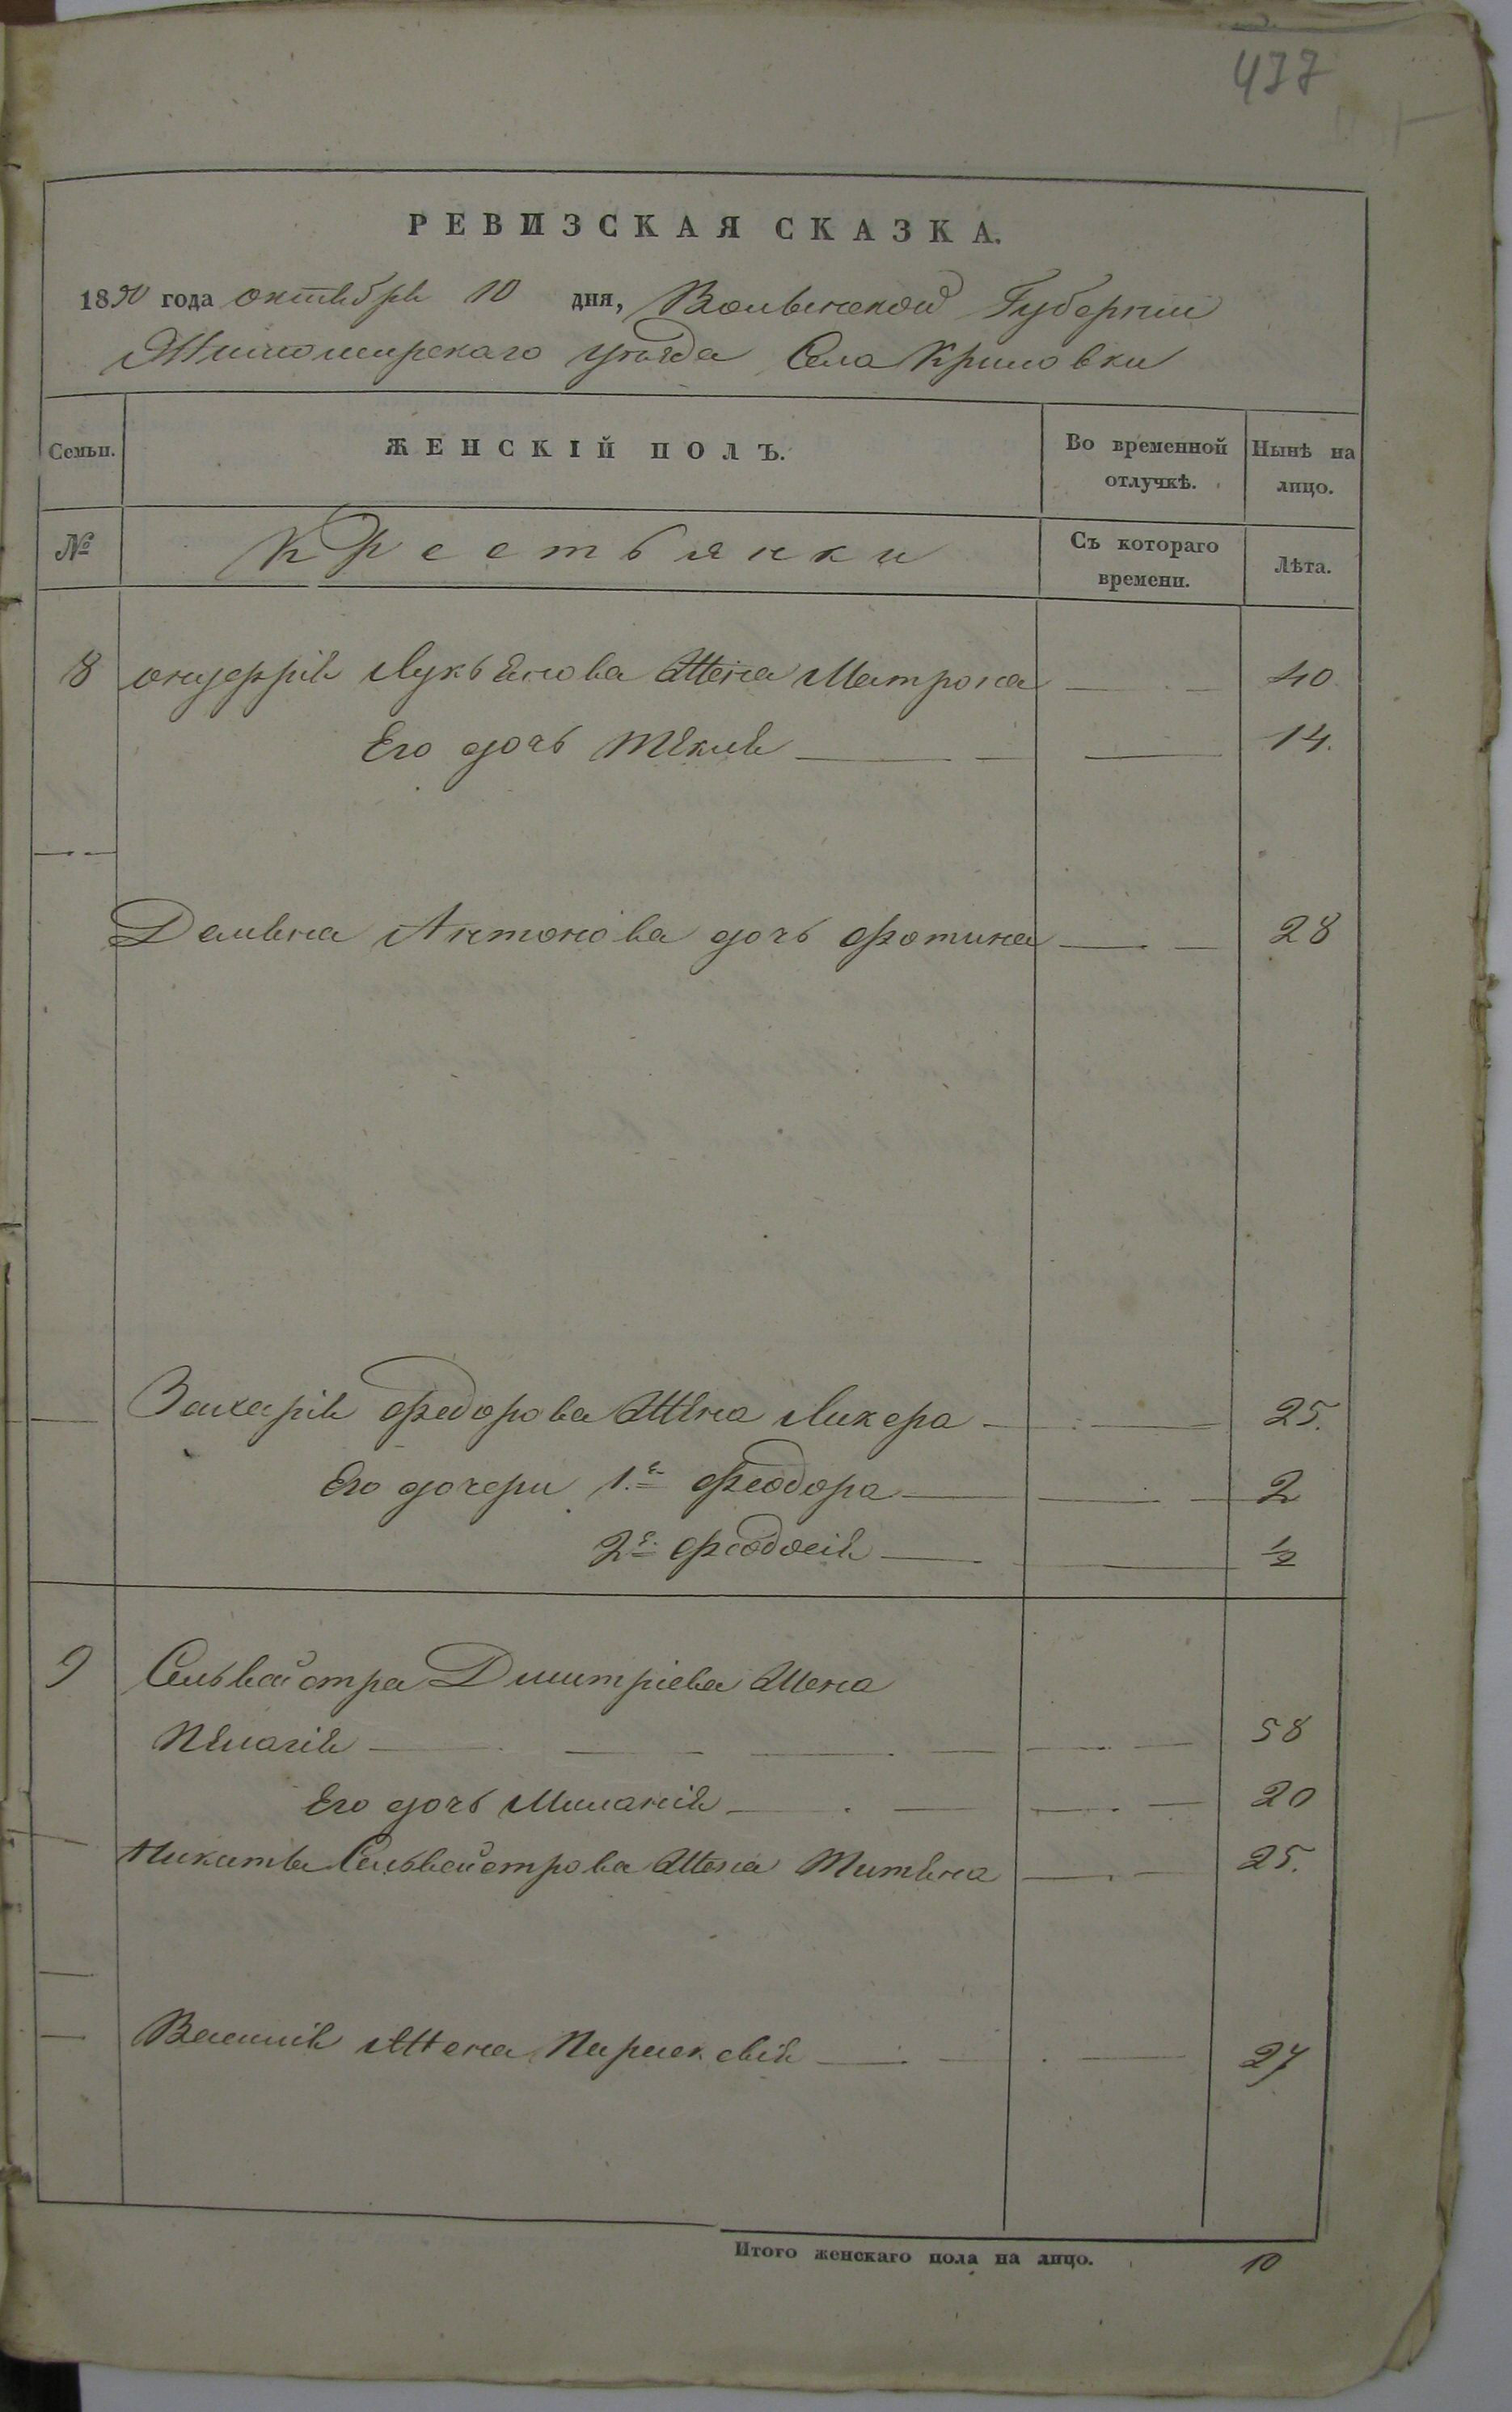 477
РЕВИЗСКАЯ СКАЗКА.
1850 года октября 10 дня, Волынской Губернии
Житомирскаго уѣзда Села Криловки
Семьи. ЖЕНСКІЙ ПОЛЪ. Во временной отлучкѣ. Нынѣ на лицо.
№ Крестьянки Съ котораго времени. Лѣта.
8 Онуфрія Лукьянова жена Матрона 40
Его дочь Текля 14.
Демьяна Антонова дочь Фотина 28
Захарія Федорова жена Ликера 25.
Его дочери 1.я Феодора 2
2я Феодосія ½
9 Сильвестра Дмитріева жена
Пелагія 58
Его дочь Миланія 20
Никиты Сильвестрова жена Татьяна 25.
Василія жена Парасковія 27
Итого женскаго пола на лицо. 10